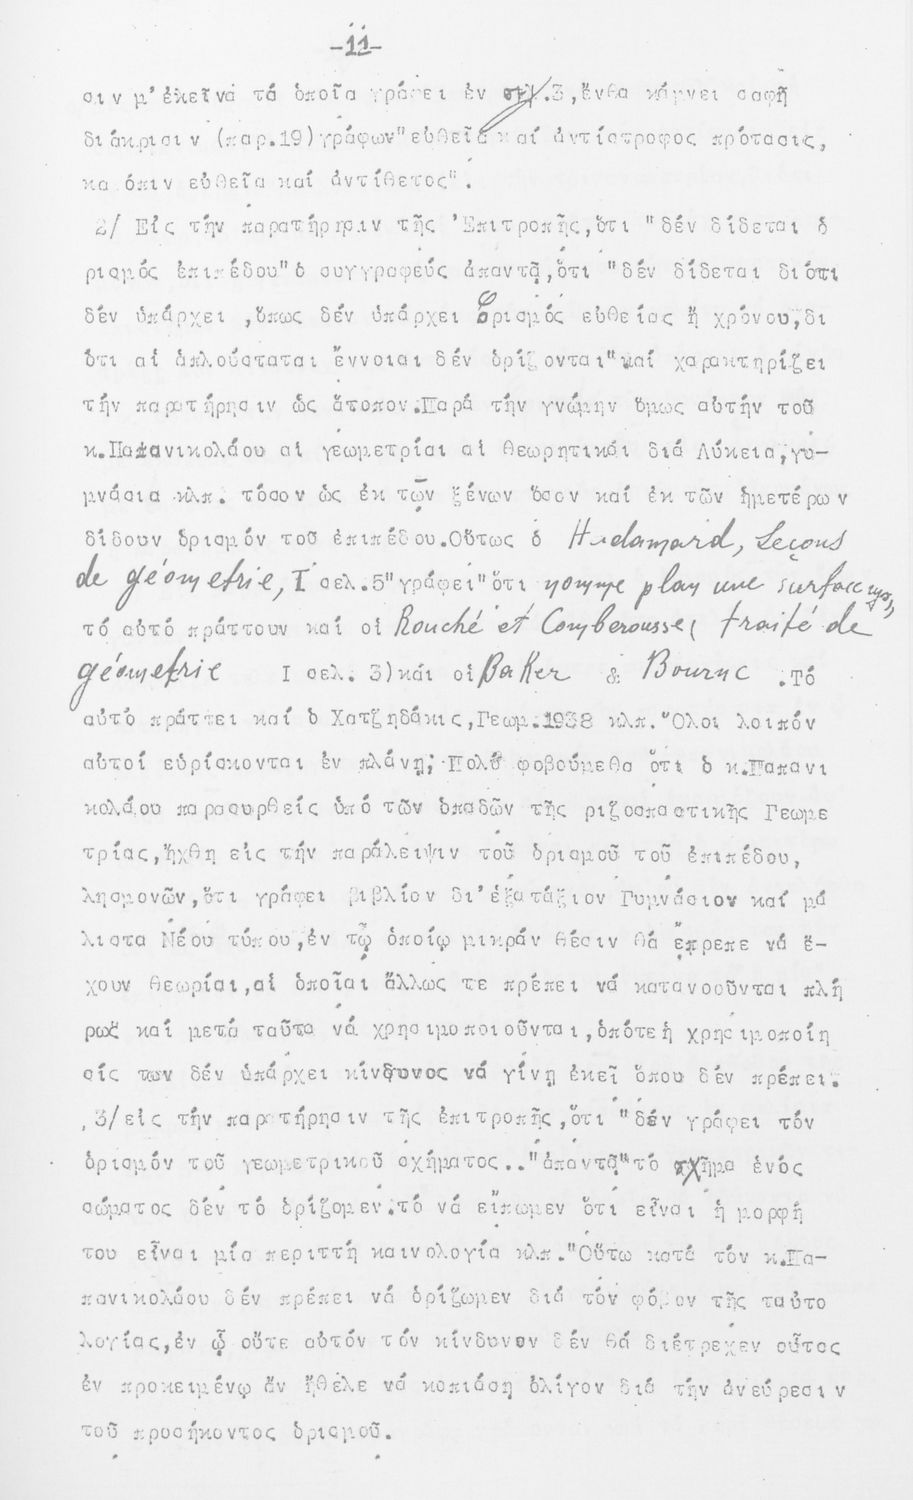 -11-
σιν μ' ἐκεῖνα τά ὁποῖα γράφει ἐν σελ.3, ἔνθα κάμνει σαφῆ
διάκρισιν (παρ.19) γράφων "εὐθεῖα καί ἀντίστροφος πρότασις,
κατόπιν εὐθεῖα καί ἀντίθετος".
2/ Εἰς τήν παρατήρησιν τῆς Ἐπιτροπῆς, ὅτι "δέν δίδεται ὁ
ρισμός ἐπιπέδου" ὁ συγγραφεύς ἀπαντᾷ, ὅτι "δέν δίδεται διότι
δέν ὑπάρχει, ὅπως δέν ὑπάρχει ὁρισμός εὐθείας ἤ χρόνου, δι
ότι αἱ ἁπλούσταται ἔννοιαι δέν ὁρίζονται" καί χαρακτηρίζει
τήν παρατήρησιν ὡς ἄτοπον. Παρά τήν γνώμην ὅμως αὐτήν τοῦ
κ. Παπανικολάου αἱ γεωμετρίαι αἱ θεωρητικαί διά Λύκεια, γυ-
μνάσια κλπ. τόσον ὡς ἐκ τῶν ξένων ὅσον καί ἐκ τῶν ἡμετέρων
δίδουν ὁρισμόν τοῦ ἐπιπέδου. Οὕτως ὁ Hadamard, Leçons
de géometrie, I σελ. 5 "γράφει" ὅτι nomme plan une surface
τό αὐτό πράττουν καί οἱ Rouché et Comberousse ( traité de
géometrie I σελ. 3) καί οἱ Baker & Bourne . Τό
αὐτό πράττει καί ὁ Χατζηδάκις, Γεωμ. 1938 κλπ. Ὅλοι λοιπόν
αὐτοί εὑρίσκονται ἐν πλάνῃ; Πολύ φοβούμεθα ὅτι ὁ κ. Παπανι
κολάου παρασυρθείς ὑπό τῶν ὀπαδῶν τῆς ριζοσπαστικῆς Γεωμε
τρίας, ἤχθη εἰς τήν παράλειψιν τοῦ ὁρισμοῦ τοῦ ἐπιπέδου,
λησμονῶν, ὅτι γράφει βιβλίον δι' ἑξατάξιον Γυμνάσιον καί μά
λιστα Νέου τύπου, ἐν τῷ ὁποίῳ μικράν θέσιν θά ἔπρεπε νά ἔ-
χουν θεωρίαι, αἱ ὁποῖαι ἄλλως τε πρέπει νά κατανοοῦνται πλή
ρως καί μετά ταῦτα νά χρησιμοποιοῦνται, ὁπότε ἡ χρησιμοποίη
σίς των δέν ὑπάρχει κίνδυνος νά γίνῃ ἐκεῖ ὅπου δέν πρέπει.
3/ εἰς τήν παρατήρησιν τῆς ἐπιτροπῆς, ὅτι "δέν γράφει τόν
ὁρισμόν τοῦ γεωμετρικοῦ σχήματος.." ἀπαντᾷ "τό σχῆμα ἑνός
σώματος δέν τό ὁρίζομεν. τό νά εἴπωμεν ὅτι εἶναι ἡ μορφή
του εἶναι μία περιττή καινολογία κλπ." Οὕτω κατά τόν κ. Πα-
πανικολάου δέν πρέπει νά ὁρίζωμεν διά τόν φόβον τῆς ταὐτο
λογίας, ἐν ᾧ οὔτε αὐτόν τόν κίνδυνον δέν θά διέτρεχεν οὗτος
ἐν προκειμένῳ ἄν ἤθελε νά κοπιάσῃ ὀλίγον διά τήν ἀνεύρεσιν
τοῦ προσήκοντος ὁρισμοῦ.